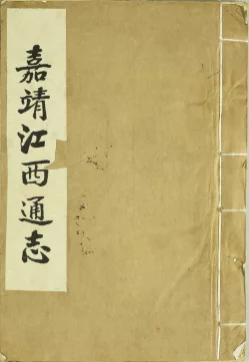 嘉靖江西通志